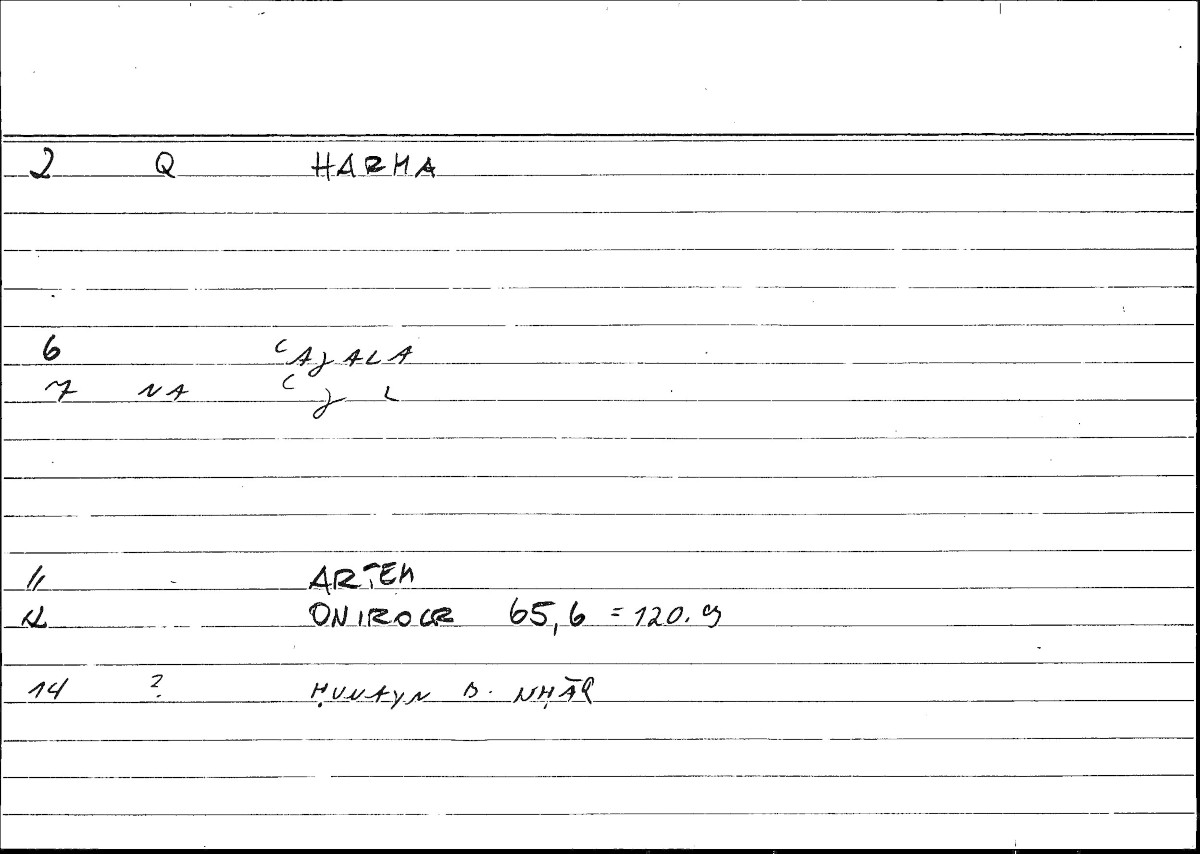 2 Q HARMA
6 ʿAJALA
7 NA ʿ J L
11 ARTEM
12 ONIROCR 65,6 = 120.9
14 ? ḤUNAYN B.